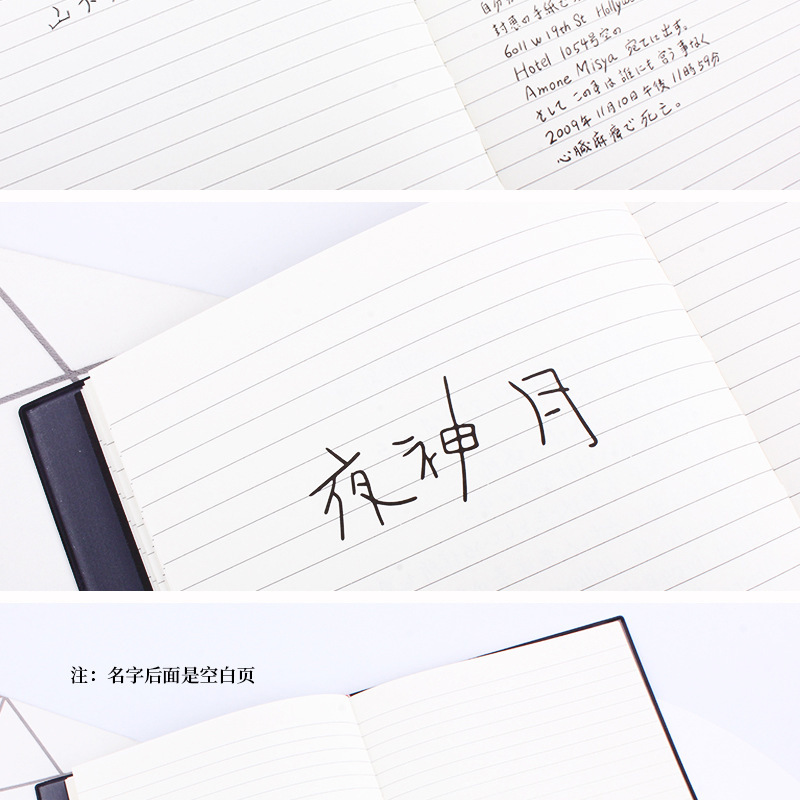 封悪の手紙で
6011 w 19th St Hollyw
Hotel 1054号室の
Amone Misya 宛てに出す。
そして この事は 誰にも言う事なく
2009年 11月10日 午後 11時59分
心臓麻痺で 死亡。
夜神 月
注：名字后面是空白页